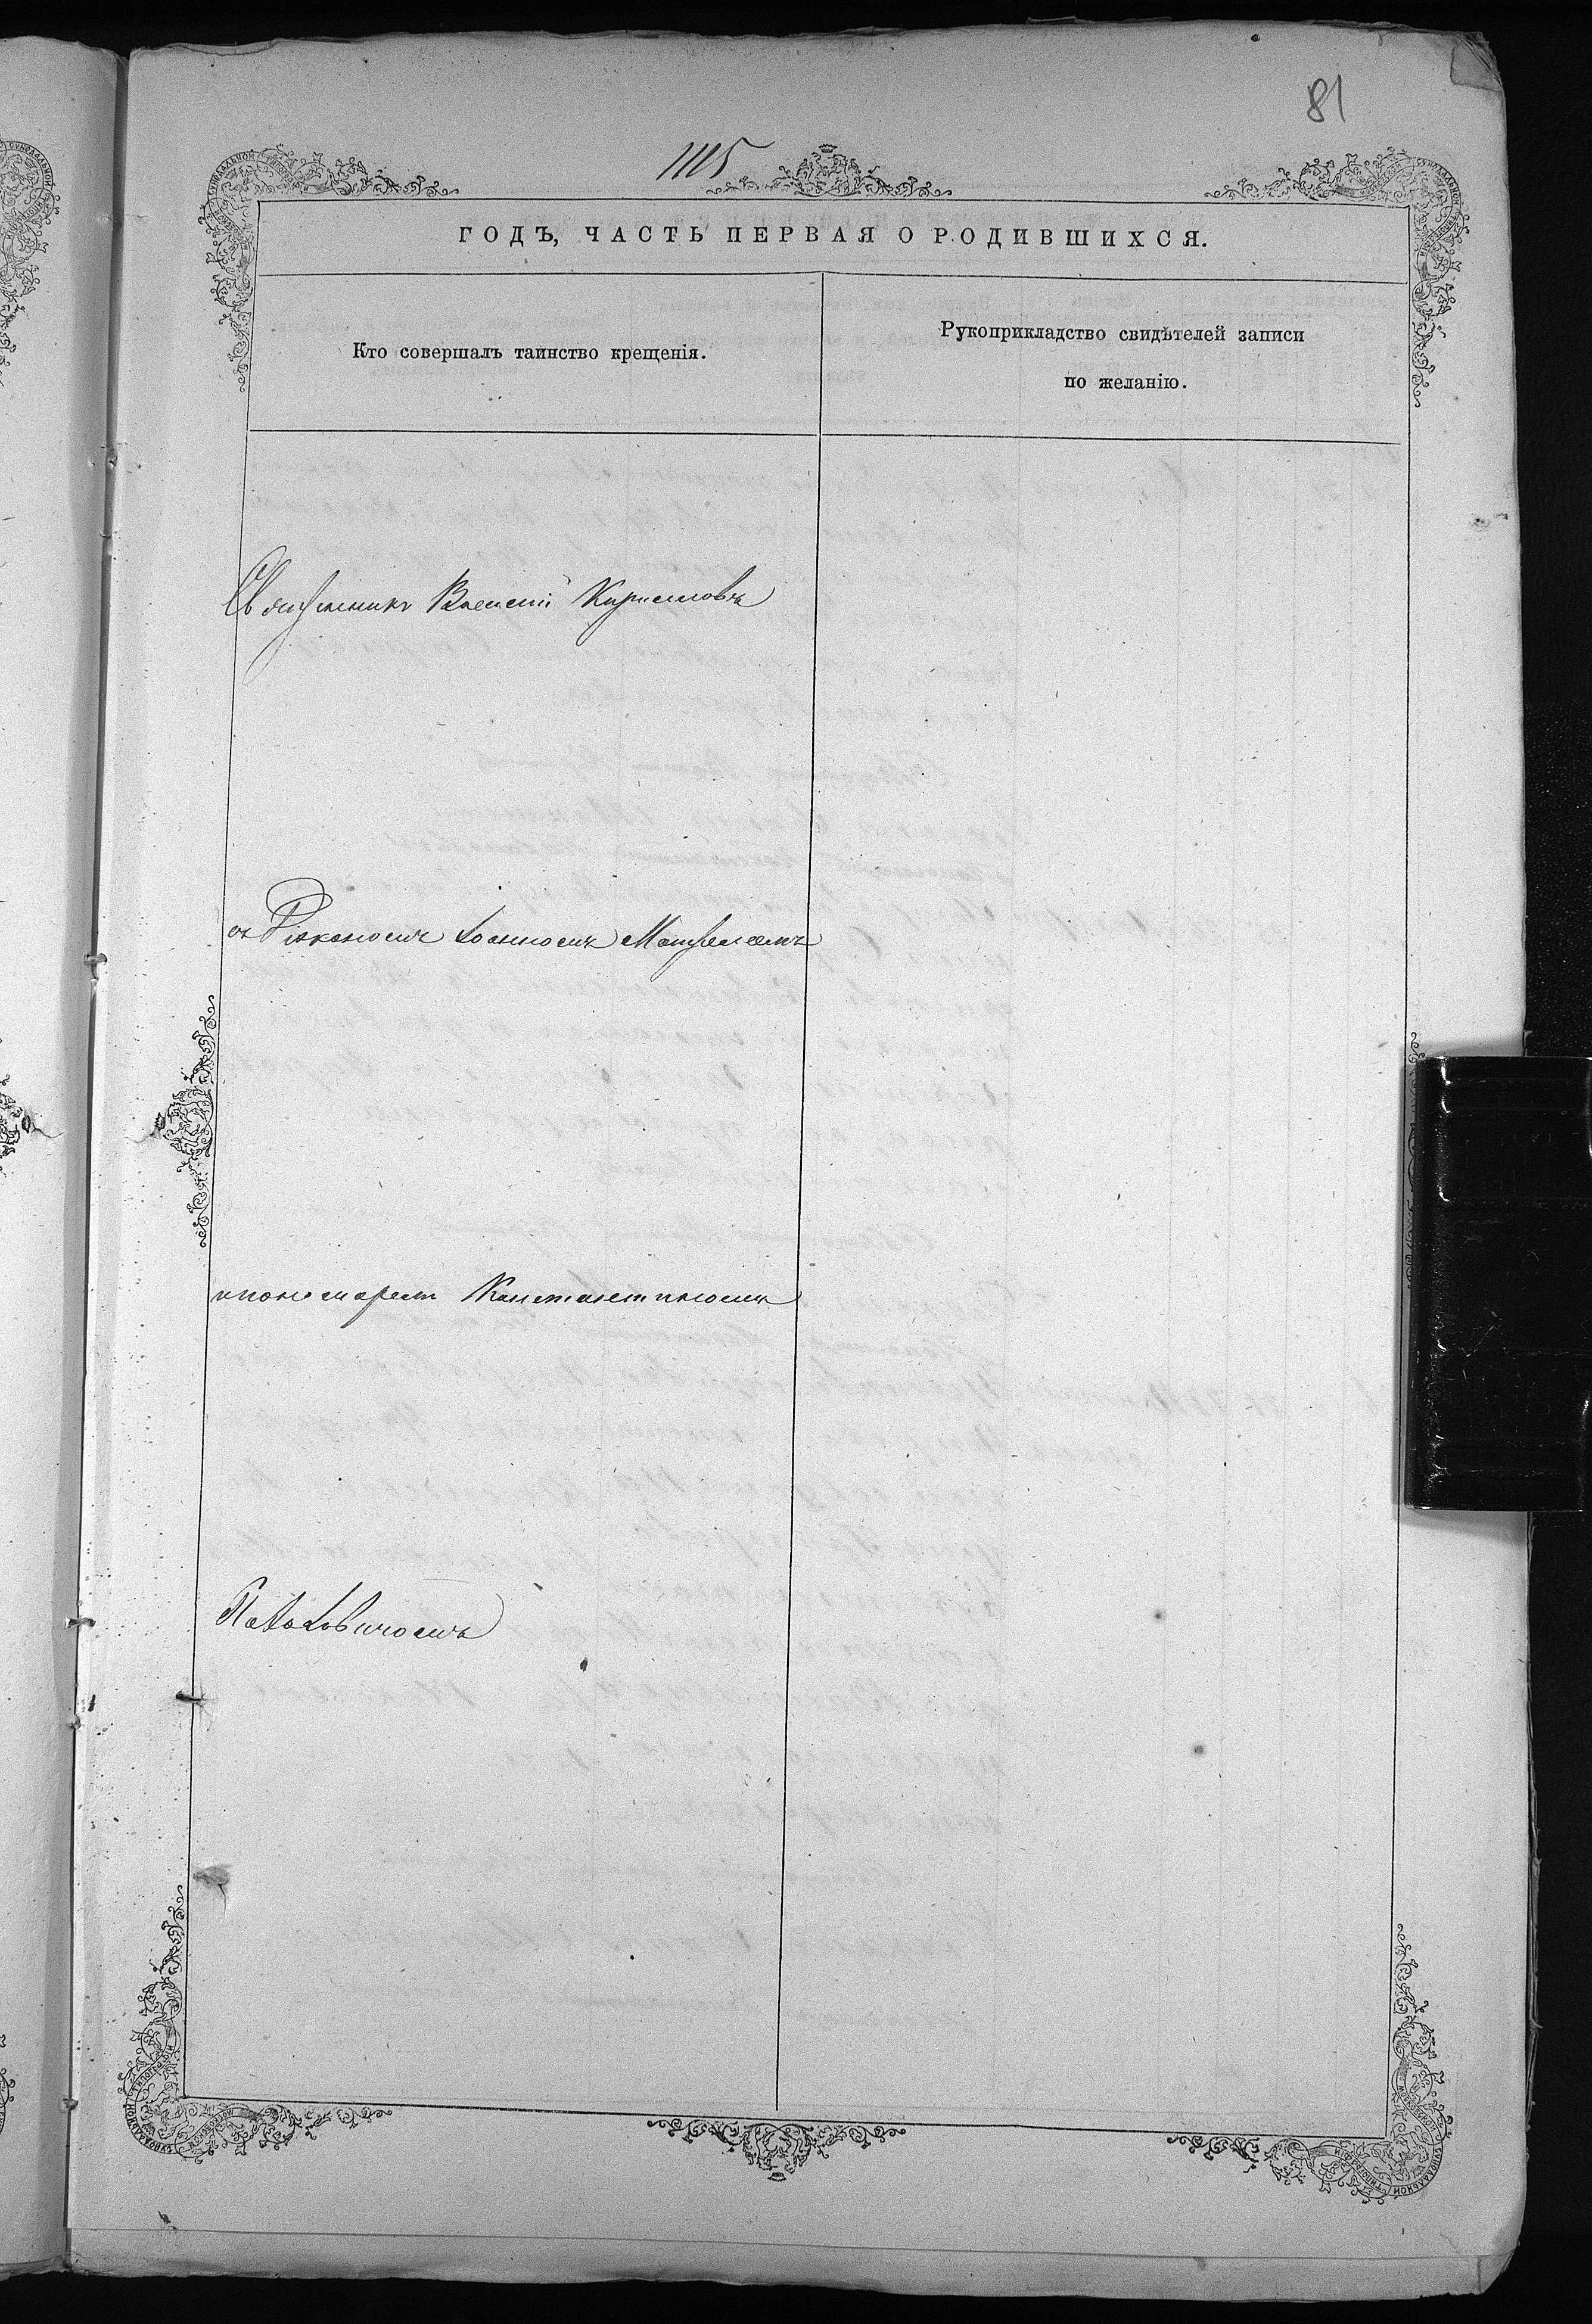 81
1115
ГОДЪ, ЧАСТЬ ПЕРВАЯ О РОДИВШИХСЯ.
Кто совершалъ таинство крещенія.
Рукоприкладство свидѣтелей записи
по желанію.
Священникъ Василій Кирилловъ
съ Діакономъ Іоанномъ
и пономаремъ Константиномъ